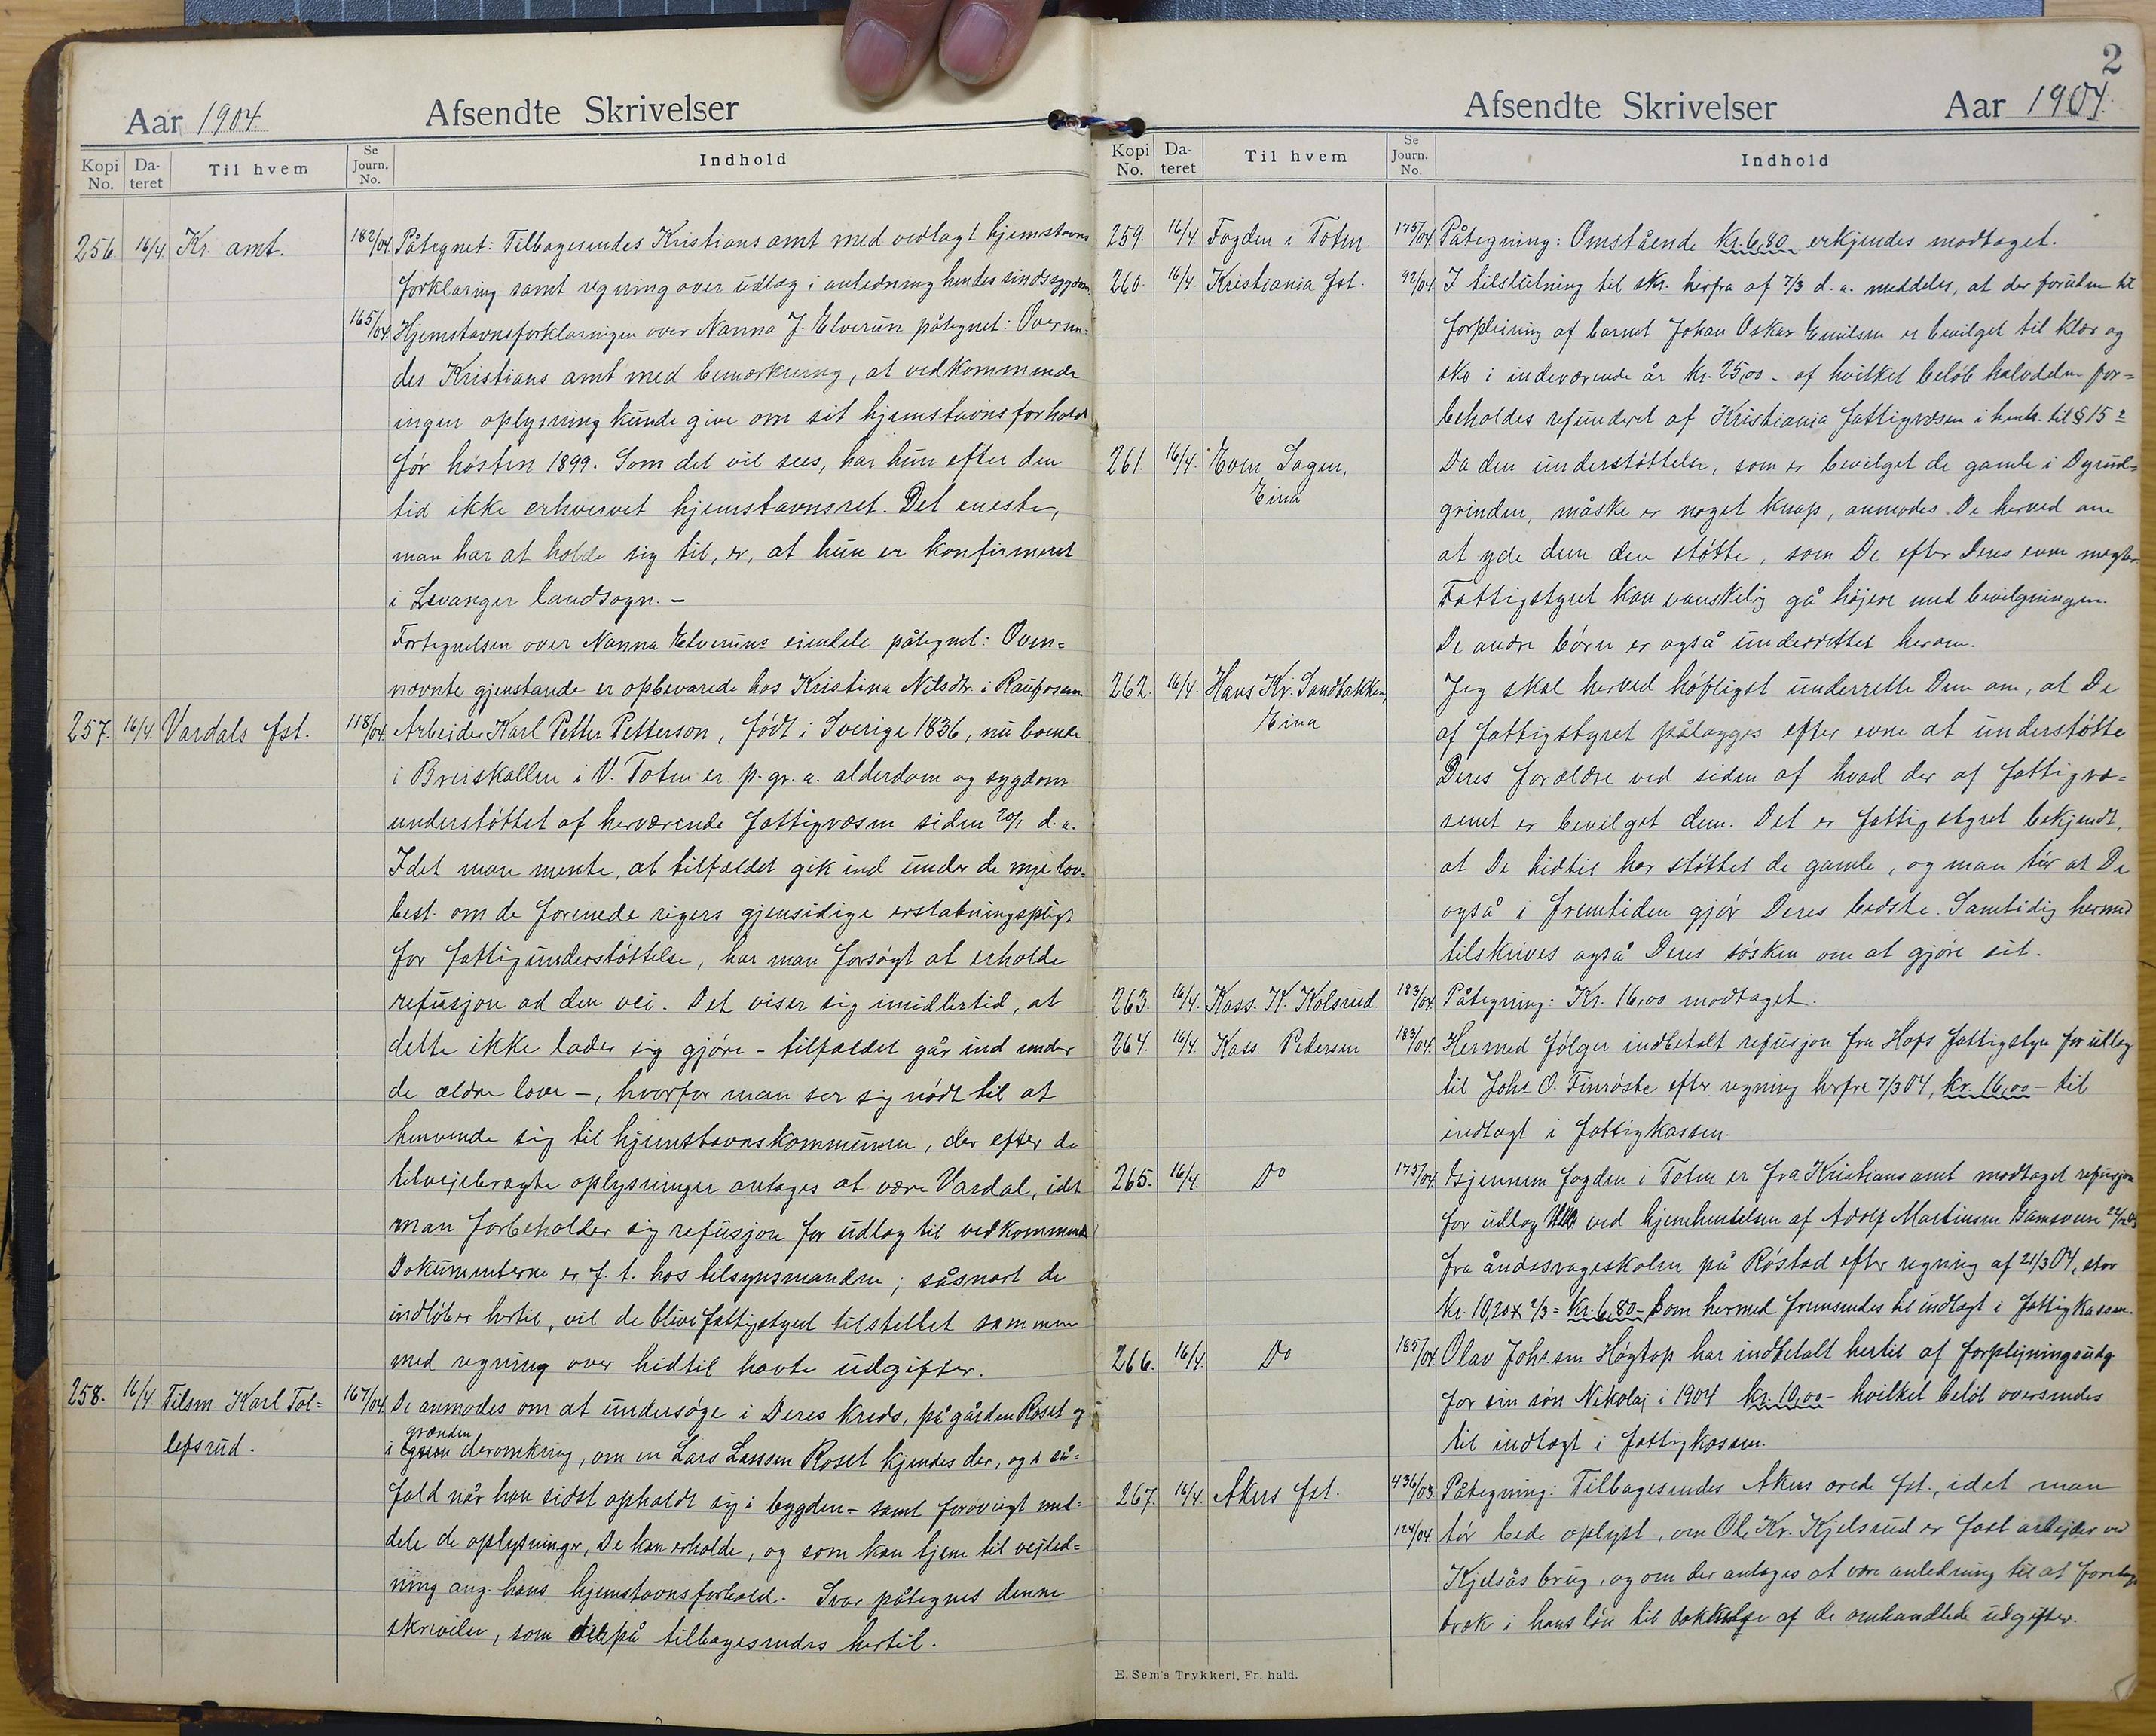 Aar 1904. Afsendte Skrivelser
Kopi No. Da- teret Til hvem Se Journ. No. Indhold
256. 16/4. Kr. amt. 182/04. Påtegnet: Tilbagesendes Kristians amt med vedlagt hjemstavns
forklaring samt regning over udlæg i anledning hendes sindssygdom.
165/04. Hjemstavnsforklaringen over Nanna J. Elverun påtegnet: Oversen-
des Kristians amt med bemærkning, at vedkommende
ingen oplysning kunde give om sit hjemstavnsforhold
før høsten 1899. Som det vil sees, har hun efter den
tid ikke erhvervet hjemstavnsret. Det eneste,
man har at holde sig til, er, at hun er konfirmeret
i Levanger landsogn. -
Fortegnelsen over Nanna Elveruns eiendele påtegnet: Oven=
nævnte gjenstande er opbevarede hos Kristina Nilsdtr. i Raufossen
257. 16/4. Vardals fst. 118/04. Arbejder Karl Petter Petterson, født i Sverige 1836, nu boende
i Breiskallen i V. Toten er p. gr. a. alderdom og sygdom
understøttet af herværende fattigvæsen siden 20/1 d. a.
Idet man mente, at tilfældet gik ind under de nye lov-
best. om de forenede rigers gjensidige erstatningspligt
for fattigunderstøttelse, har man forsøgt at erholde
refusjon ad den vei. Det viser sig imidlertid, at
dette ikke lader sig gjøre - tilfældet går ind under
de ældre love -, hvorfor man ser sig nødt til at
henvende sig til hjemstavnskommunen, der efter de
tilvejebragte oplysninger antages at være Vardal, idet
man forbeholder sig refusjon for udlæg til vedkommende
Dokumenterne er f. t. hos tilsynsmanden; såsnart de
indløber hertil, vil de blive fattigstyret tilstellet sammen
med regning over hidtil havte udgifter.
258. 16/4. Tilsm. Karl Tol= 167/04. De anmodes om at undersøge i Deres kreds, på gården Roset og
lefsrud. i grænden deromkring, om en Lars Larssen Roset kjendes der, og i så=
fald når han sidst opholdt sig i bygden - samt forøvrigt med=
dele de oplysninger, De kan erholde, og som kan tjene til vejled=
ning ang. hans hjemstavnsforhold. Svar påtegnes denne
skrivelse, som derpå tilbagesendes hertil.
2
Afsendte Skrivelser Aar 1904.
Kopi No. Da- teret Til hvem Se Journ. No. Indhold
259. 16/4. Fogden i Toten. 175/04 Påtegning: Omstående kr. 6,80 erkjendes modtaget.
260. 16/4. Kristiania fst. 92/04. I tilslutning til skr. herfra af 7/3 d. a. meddeles, at der foruden til
forpleining af barnet Johan Oskar Emilsen er bevilget til klær og
sko i indeværende år kr. 25,00 - af hvilket beløb halvdelen for=
beholdes refunderet af Kristiania fattigvæsen i henh. til § 15 2
261. 16/4. Even Sagen, Da den understøttelse, som er bevilget de gamle i Dyrud=
Eina grinden, måske er noget knap, anmodes De herved om
at yde dem den støtte, som De efter Deres evne mægter
Fattigstyret kan vanskelig gå højere med bevilgningen.
De andre børn er også underrettet herom.
262. 16/4. Hans Kr. Sandbakken, Jeg skal herved høfligst underrette Dem om, at De
Eina af fattigstyret pålægges efter evne at understøtte
Deres forældre ved siden af hvad der af fattigvæ=
senet er bevilget dem. Det er fattigstyret bekjendt,
at De hidtil har støttet de gamle, og man tør at De
også i fremtiden gjør Deres bedste. Samtidig hermed
tilskrives også Deres søsken om at gjøre sit.
263. 16/4. Kass. K. Kolsrud. 183/04. Påtegning: Kr. 16,00 modtaget.
264. 16/4. Kass. Pedersen 183/04. Hermed følger indbetalt refusjon fra Hofs fattigstyre for udlæg
til Johs. O. Finrøste efter regning herfra 7/3 04, kr. 16,00 - til
indtægt i fattigkassen.
265. 16/4. Do 175/04. Gjennem fogden i Toten er fra Kristians amt modtaget refusjon
for udlæg ved hjemhentelsen af Adolf Martinsen Gamsveen
fra åndssvageskolen på Røstad efter regning af 21/3 04, stor
kr. 10,20 x 2/3 = kr. 6,80 - som hermed fremsendes til indtægt i fattigkassen.
266. 16/4. Do 185/04. Olav Johs.sen Høgtop har indbetalt hertil af forplejningsudg.
for sin søn Nikolaj i 1904 kr. 10,00 - hvilket beløb oversendes
til indtægt i fattigkassen.
267. 16/4. Akers fst. 436/03. Påtegning: Tilbagesendes Akers ærede fst., idet man
124/04. tør bede oplyst, om Ole Kr. Kjelsrud er fast arbejder ved
Kjelsås brug, og om der antages at være anledning til at foretage
træk i hans løn til dækkelse af de omhandlede udgifter.
E. Sem's Trykkeri, Fr. hald.